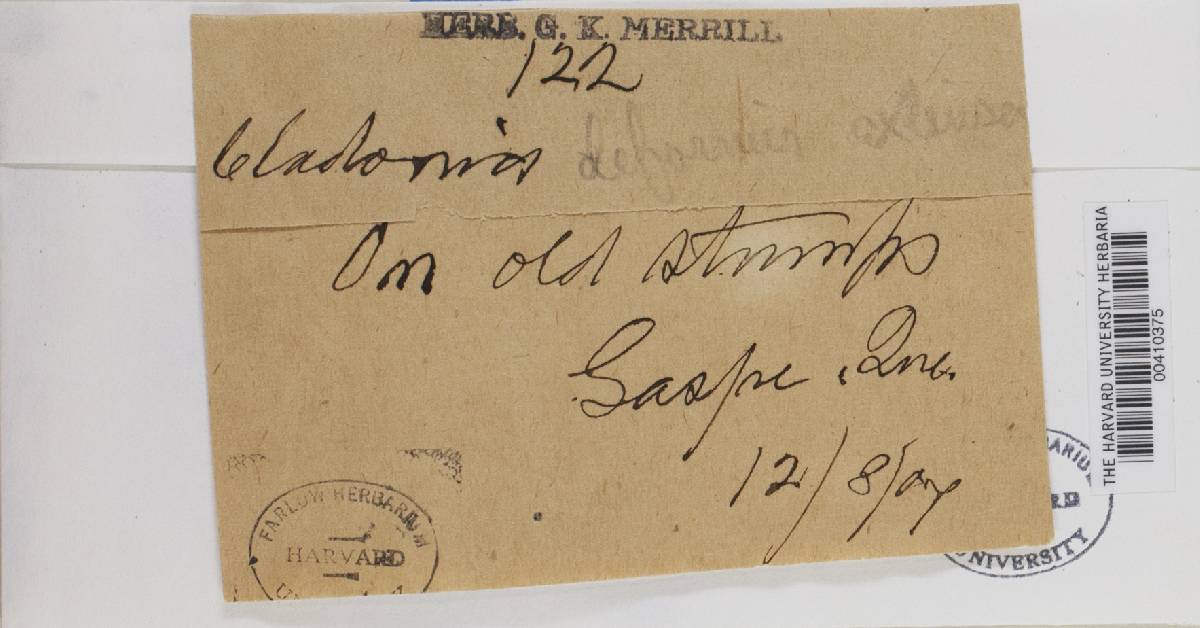 HERB. G. K. MERRILL
122
Cladonia deformis extensa
On old stumps
Gaspe, Que.
12/8/07
FARLOW HERBARIUM
HARVARD
THE HARVARD UNIVERSITY HERBARIA
00410375
UNIVERSITY